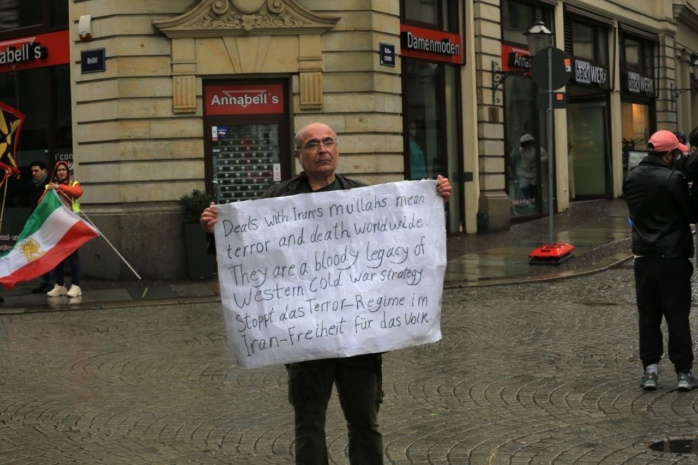 Annabell's
Annabell's
Damenmoden
BACKWERK
BACKWERK
Deals with Iran's mullahs mean
terror and death worldwide.
They are a bloody legacy of
Western cold war strategy.
Stoppt das Terror-Regime im
Iran-Freiheit für das Volk.